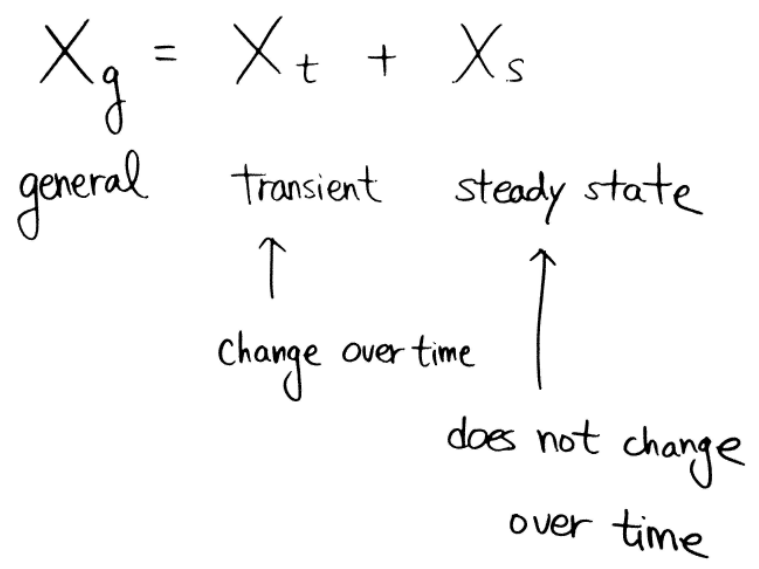 X_g = X_t + X_s
general transient steady state
change over time
does not change
over time